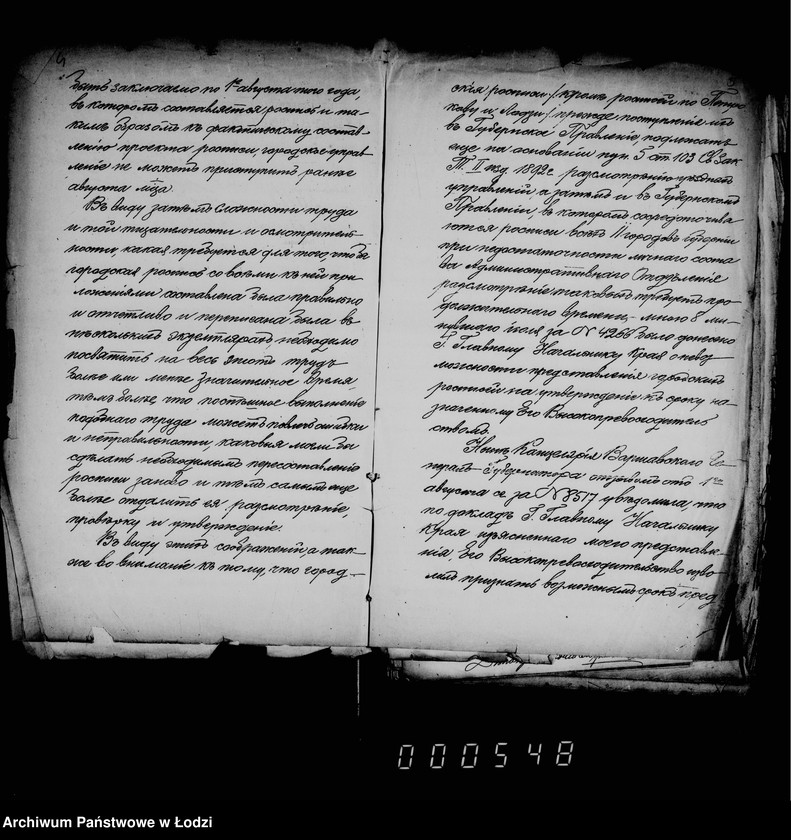 быть заключаемо по 1е августа того года,
въ которомъ составляется роспись и та-
кимъ образомъ къ фактическому состав-
ленію проекта росписи, городское управ-
леніе не можетъ приступить ранѣе
августа м̃ца.
Въ виду затѣмъ сложности труда
и той тщательности и осмотритель-
ности, какая требуется для того, чтобы
городская роспись со всѣми къ ней при-
ложеніями составлена была правильно
и отчетливо и переписана была въ
нѣсколькихъ экземплярахъ необходимо
посвятить на весь этотъ трудъ
болѣе или менѣе значительное время,
тѣмъ болѣе что поспѣшное выполненіе
подобнаго труда можетъ повлечь ошибки
и неправильности, каковыя могли бы
сдѣлать необходимымъ пересоставленіе
росписи заново и тѣмъ самымъ еще
болѣе отдалить ея разсмотрѣніе,
провѣрку и утвержденіе.
Въ виду этихъ соображеній, а так-
же во вниманіе къ тому, что город-
скія росписи /кромѣ росписей по Петро
кову и Лодзи/ прежде поступленія ихъ
въ Губернское Правленіе, подлежатъ
еще на основаніи пун. 5 ст 103 Св. Зак
Т. II изд. 1892 г разсмотрѣнію уѣздныхъ
управленій а затѣмъ и въ Губернскомъ
Правленіи, въ которомъ сосредоточива
ются росписи всѣхъ 11 городовъ губерніи
при недостаточности личнаго соста
ва Административнаго Отдѣленія
разсмотрѣніе таковыхъ требуетъ про
должительнаго времени, – мною 8 ми-
нувшаго іюля за № 4266 было донесено
Г. Главному Начальнику Края о невоз
можности представленія городскихъ
росписей на утвержденіе къ сроку на
значенному Его Высокопревосходитель
ствомъ.
Нынѣ Канцелярія Варшавскаго Ге-
нералъ-Губернатора отзывомъ отъ 1го
августа с. г. за № 8517 увѣдомила, что
по докладѣ Г. Главному Начальнику
Края изъясненнаго моего представле-
нія, Его Высокопревосходительство изво
лилъ признать возможнымъ срокъ пред
000548
Archiwum Państwowe w Łodzi